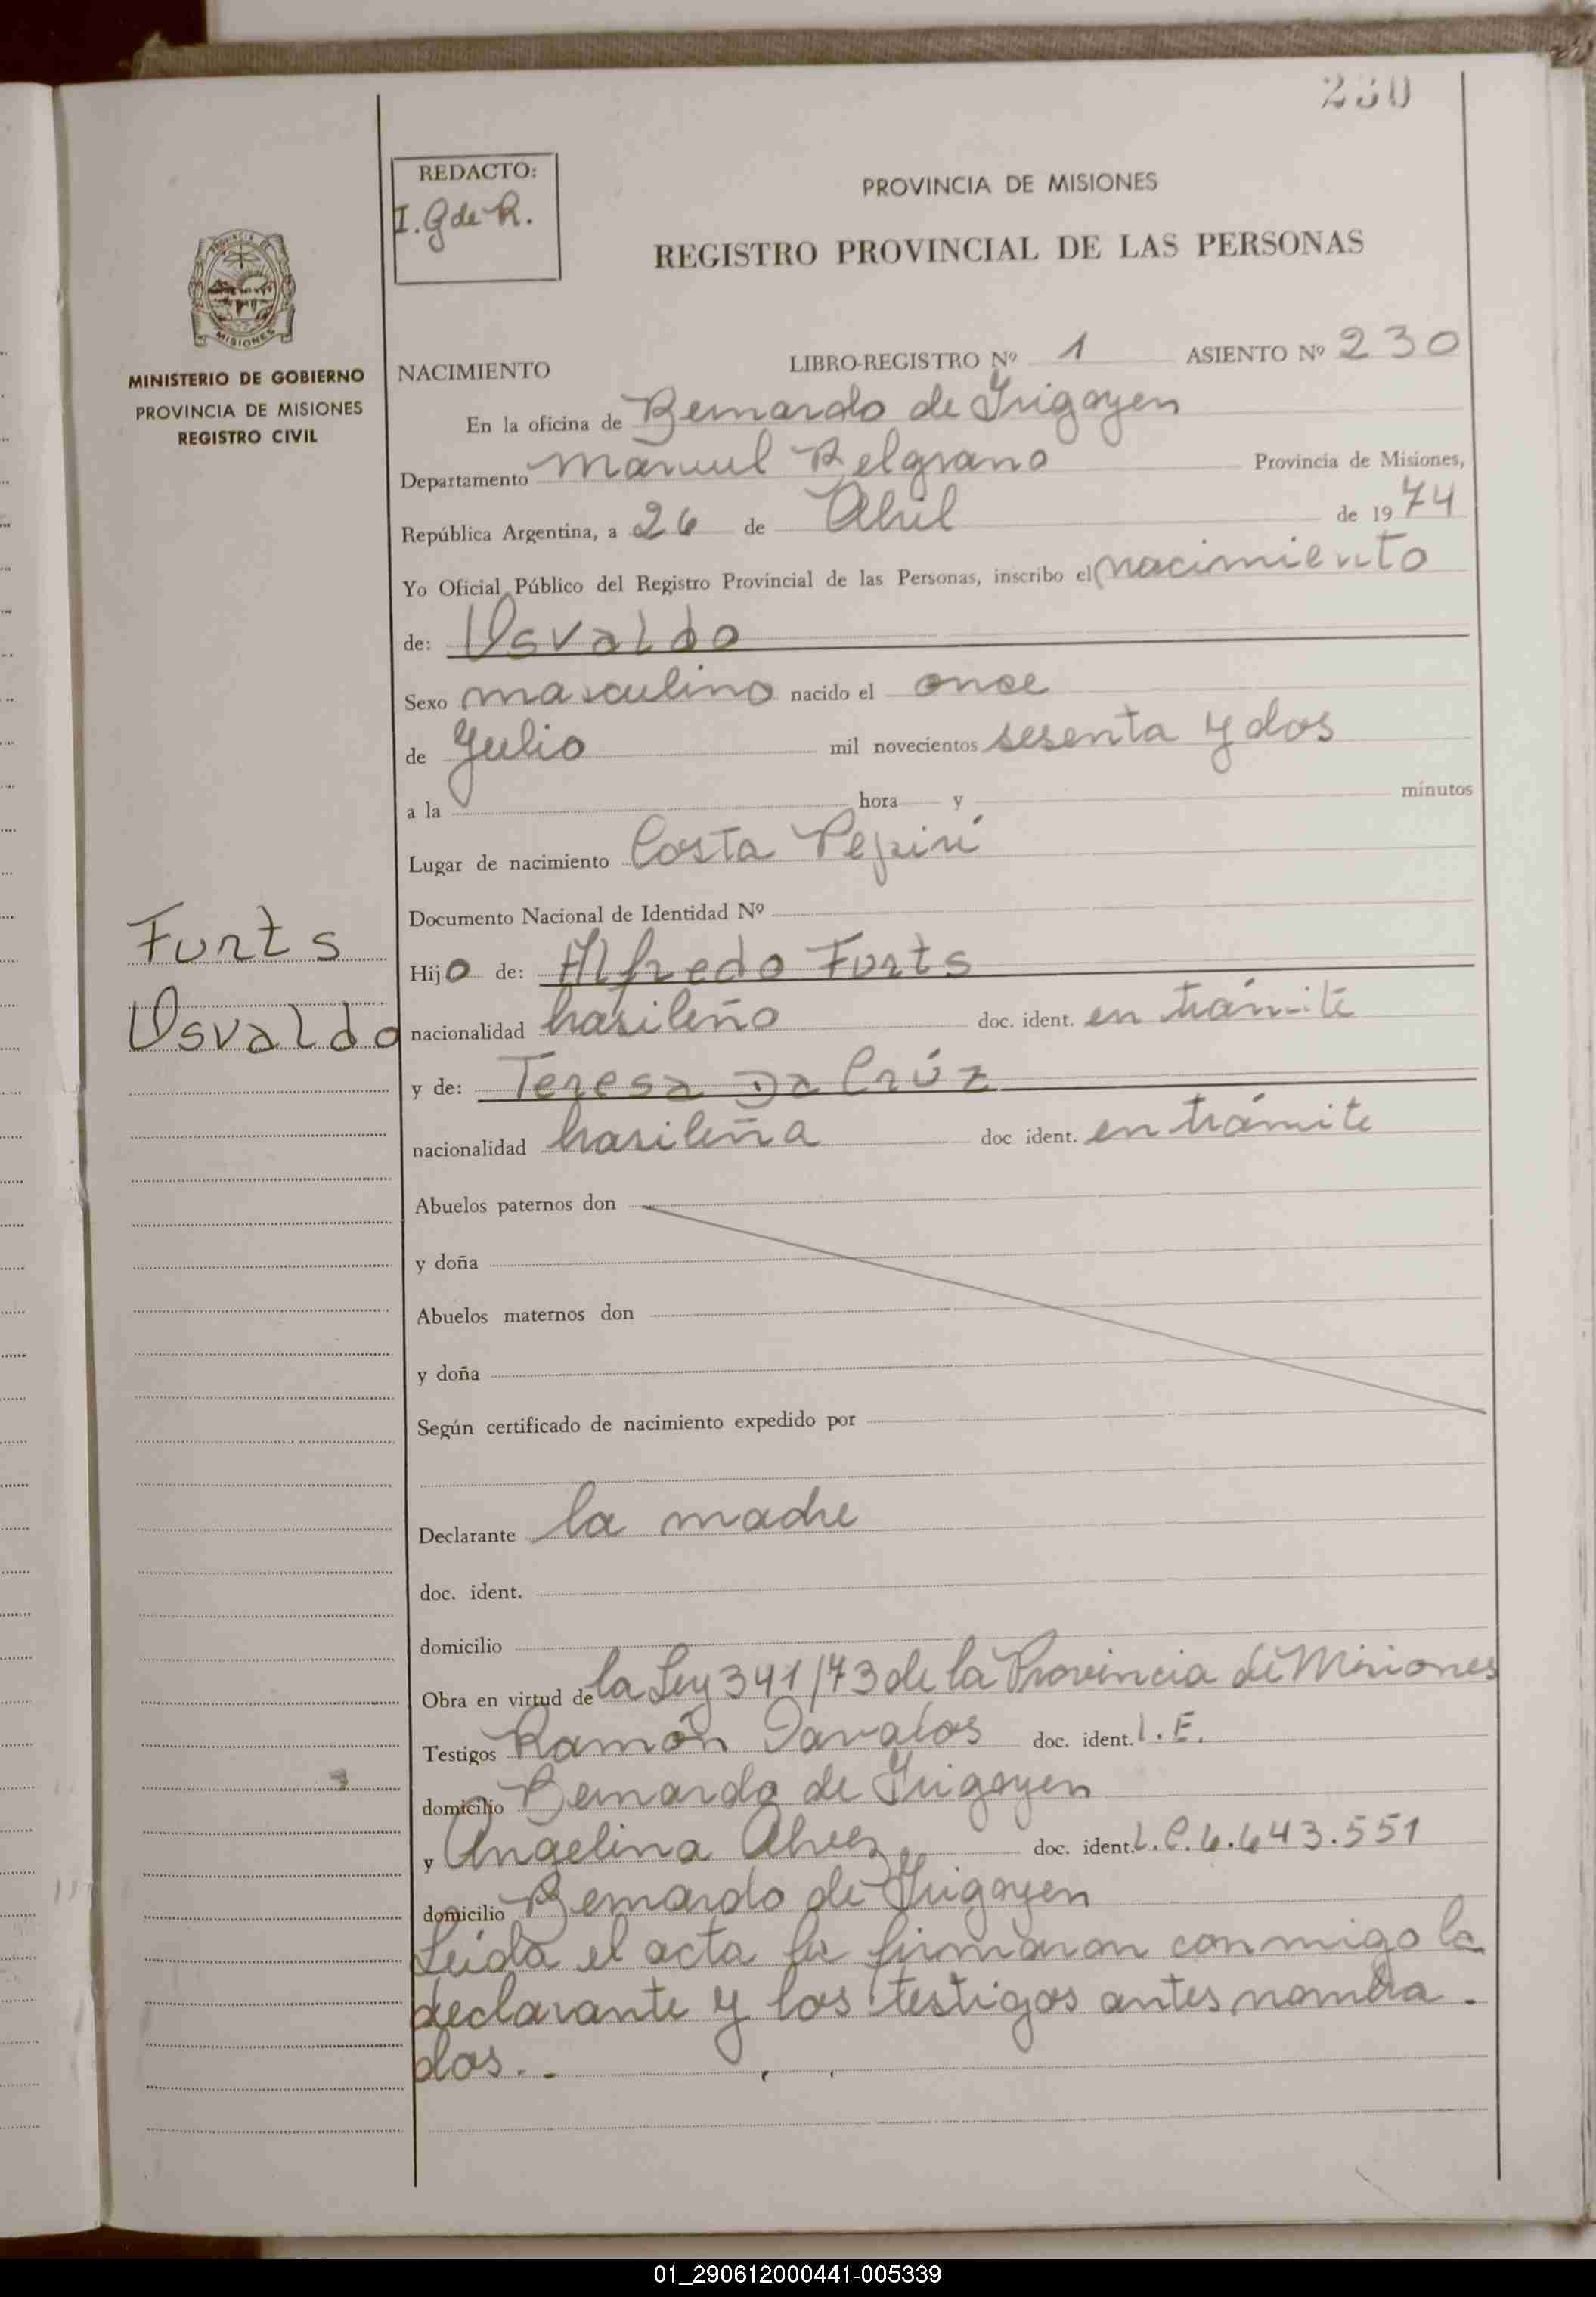 230
REDACTO:
I. G de R.
PROVINCIA DE MISIONES
REGISTRO PROVINCIAL DE LAS PERSONAS
PROVINCIA DE
MISIONES
MINISTERIO DE GOBIERNO
PROVINCIA DE MISIONES
REGISTRO CIVIL
NACIMIENTO LIBRO-REGISTRO Nº 1 ASIENTO Nº 230
En la oficina de Bernardo de Irigoyen
Departamento Manuel Belgrano Provincia de Misiones,
República Argentina, a 26 de Abril de 1974
Yo Oficial Público del Registro Provincial de las Personas, inscribo el nacimiento
de: Osvaldo
Sexo masculino nacido el once
de Julio mil novecientos sesenta y dos
a la hora y minutos
Lugar de nacimiento Costa Pepirí
Documento Nacional de Identidad Nº
Furts
Hijo de: Alfredo Furts
Osvaldo
nacionalidad brasileño doc. ident. en trámite
y de: Teresa Da Crúz
nacionalidad brasileña doc ident. en trámite
Abuelos paternos don
y doña
Abuelos maternos don
y doña
Según certificado de nacimiento expedido por
Declarante la madre
doc. ident.
domicilio
Obra en virtud de la Ley 341/73 de la Provincia de Misiones
Testigos Ramón Davalos doc. ident. L.E.
domicilio Bernardo de Irigoyen
y Angelina Alvez doc. ident. L.C. 6.643.551
domicilio Bernardo de Irigoyen
Leída el acta la firmaron conmigo la
declarante y los testigos antes nombra-
dos.-
01_290612000441-005339